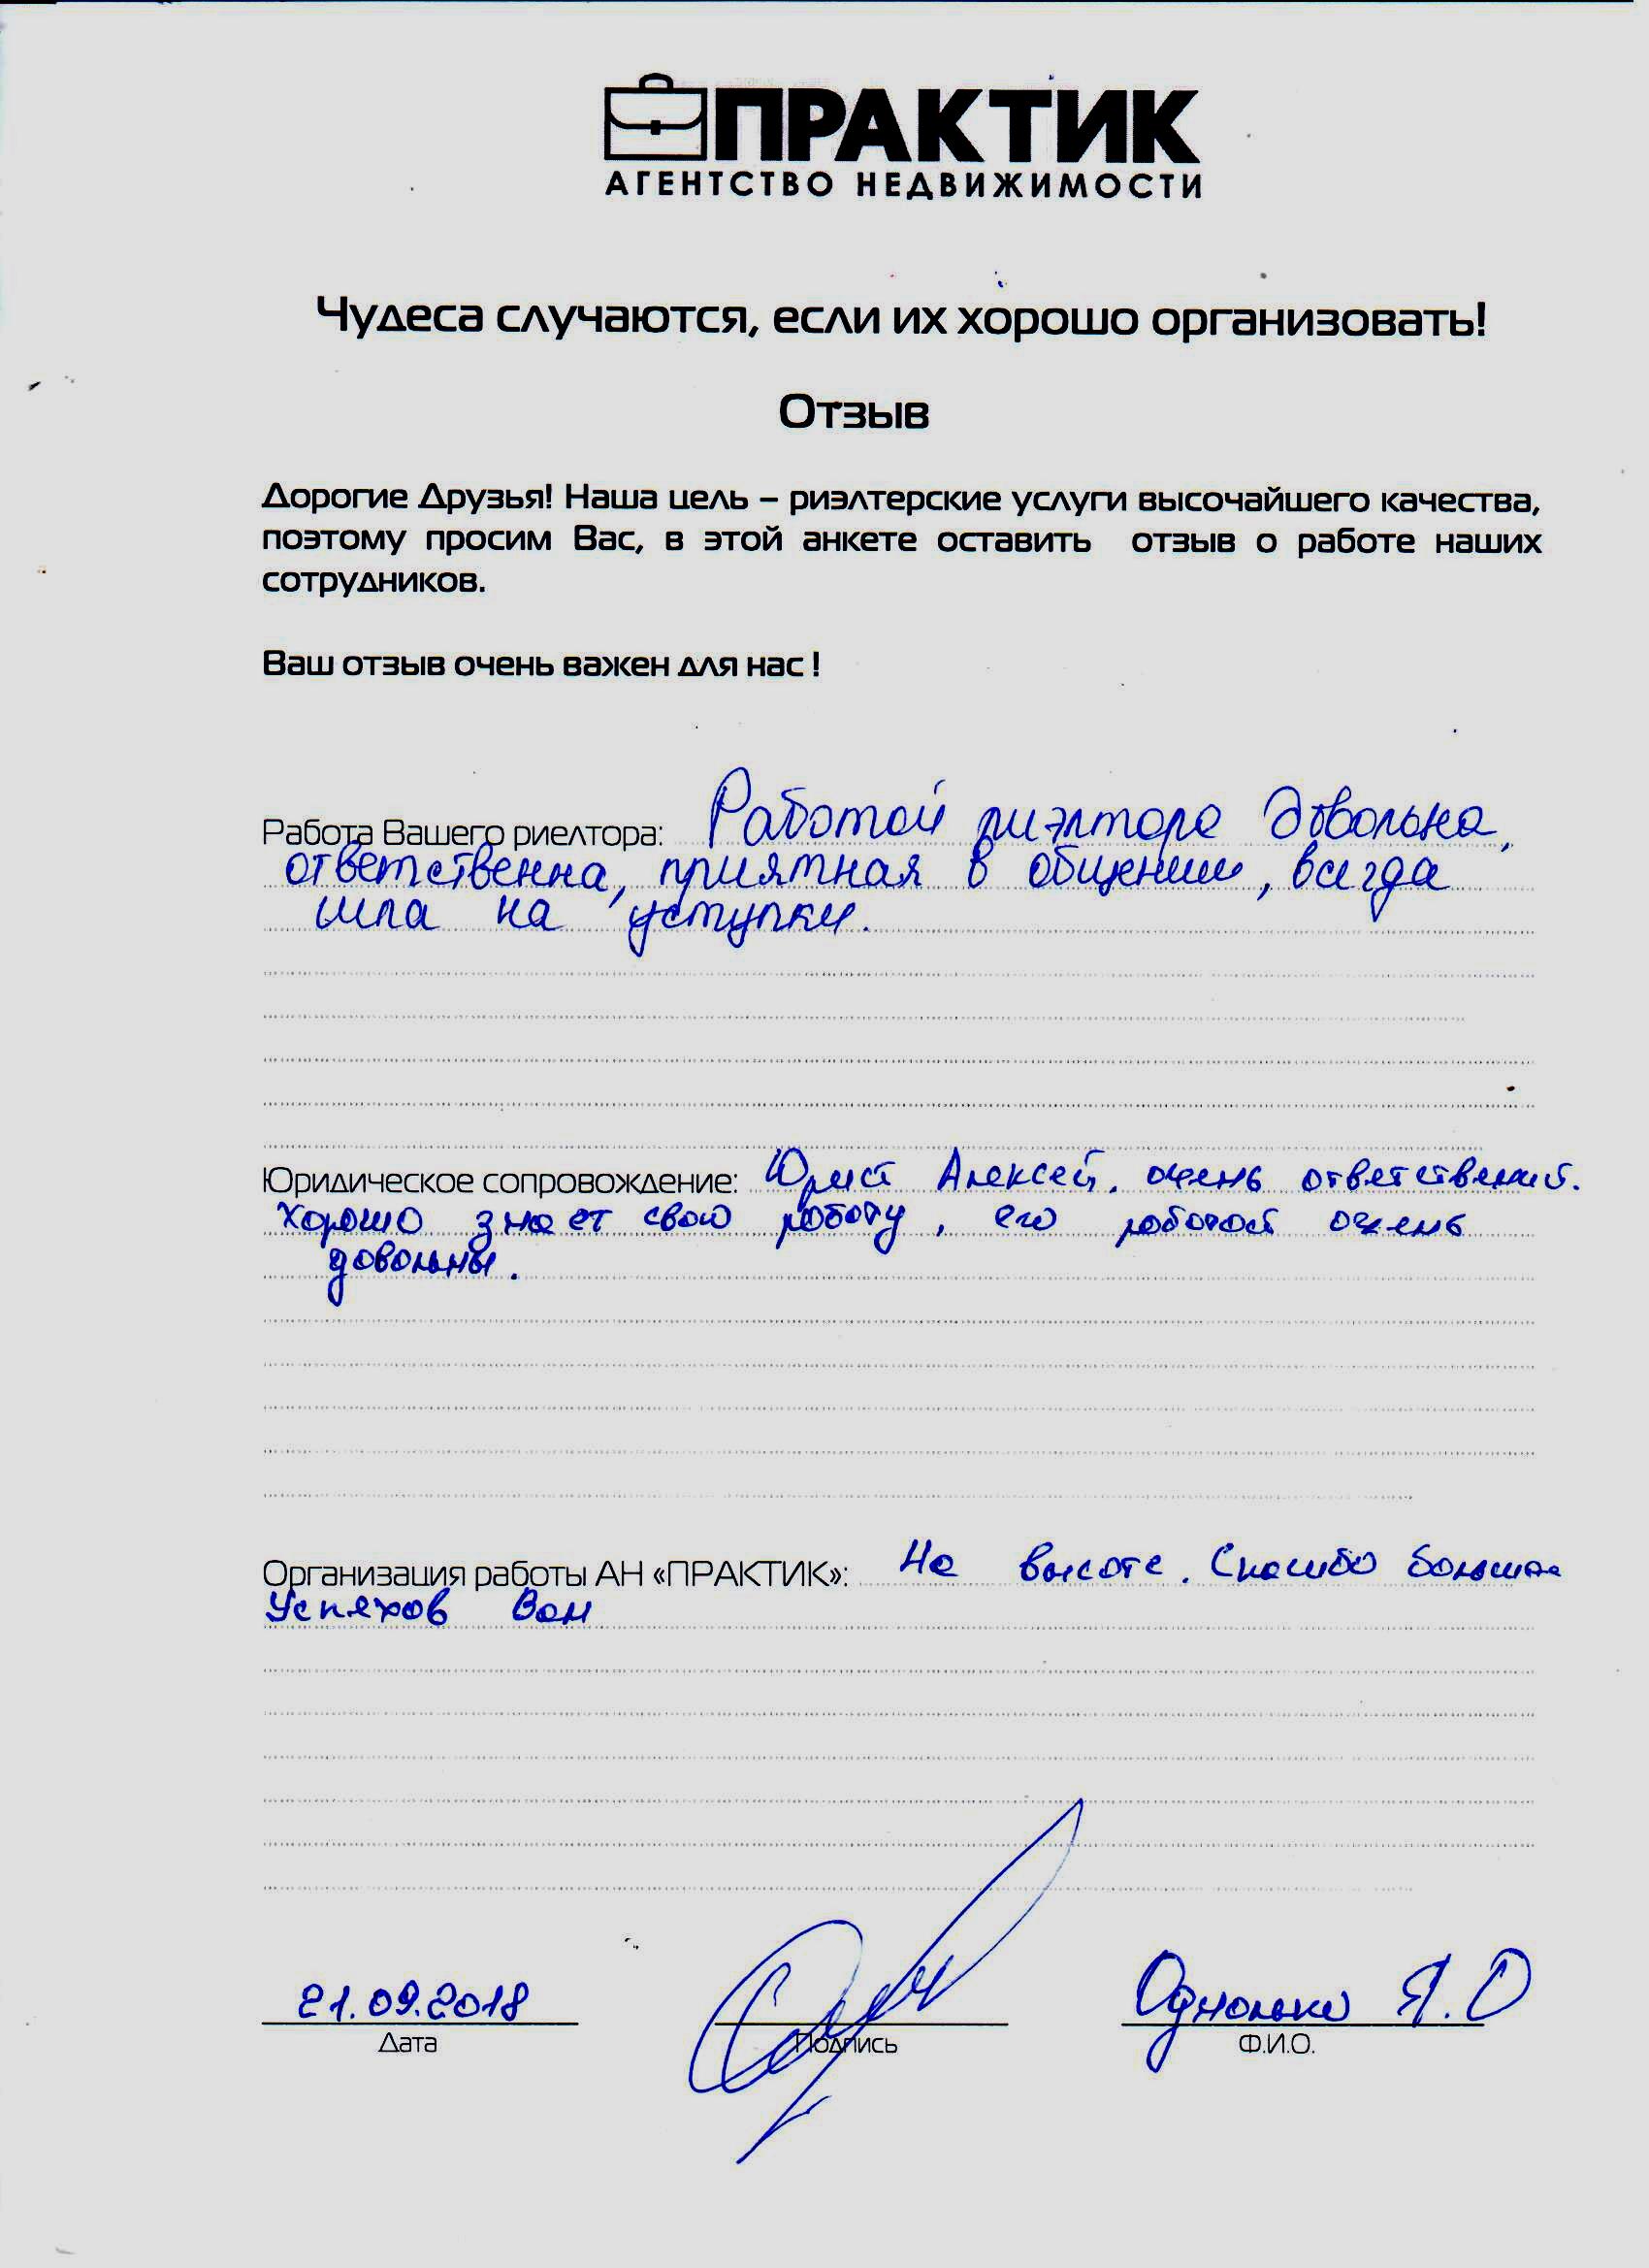 ПРАКТИК
АГЕНТСТВО НЕДВИЖИМОСТИ
Чудеса случаются, если их хорошо организовать!
Отзыв
Дорогие Друзья! Наша цель – риэлтерские услуги высочайшего качества,
поэтому просим Вас, в этой анкете оставить отзыв о работе наших
сотрудников.
Ваш отзыв очень важен для нас !
Работа Вашего риелтора: Работой риэлтора довольна,
ответственна, приятная в общении, всегда
шла на уступки.
Юридическое сопровождение: Юрист Алексей. очень ответственный.
Хорошо знает свою работу, его работой очень
довольны.
Организация работы АН «ПРАКТИК»: На высоте. Спасибо большое
Успехов Вам
21.09.2018
Я.О
Дата Подпись Ф.И.О.